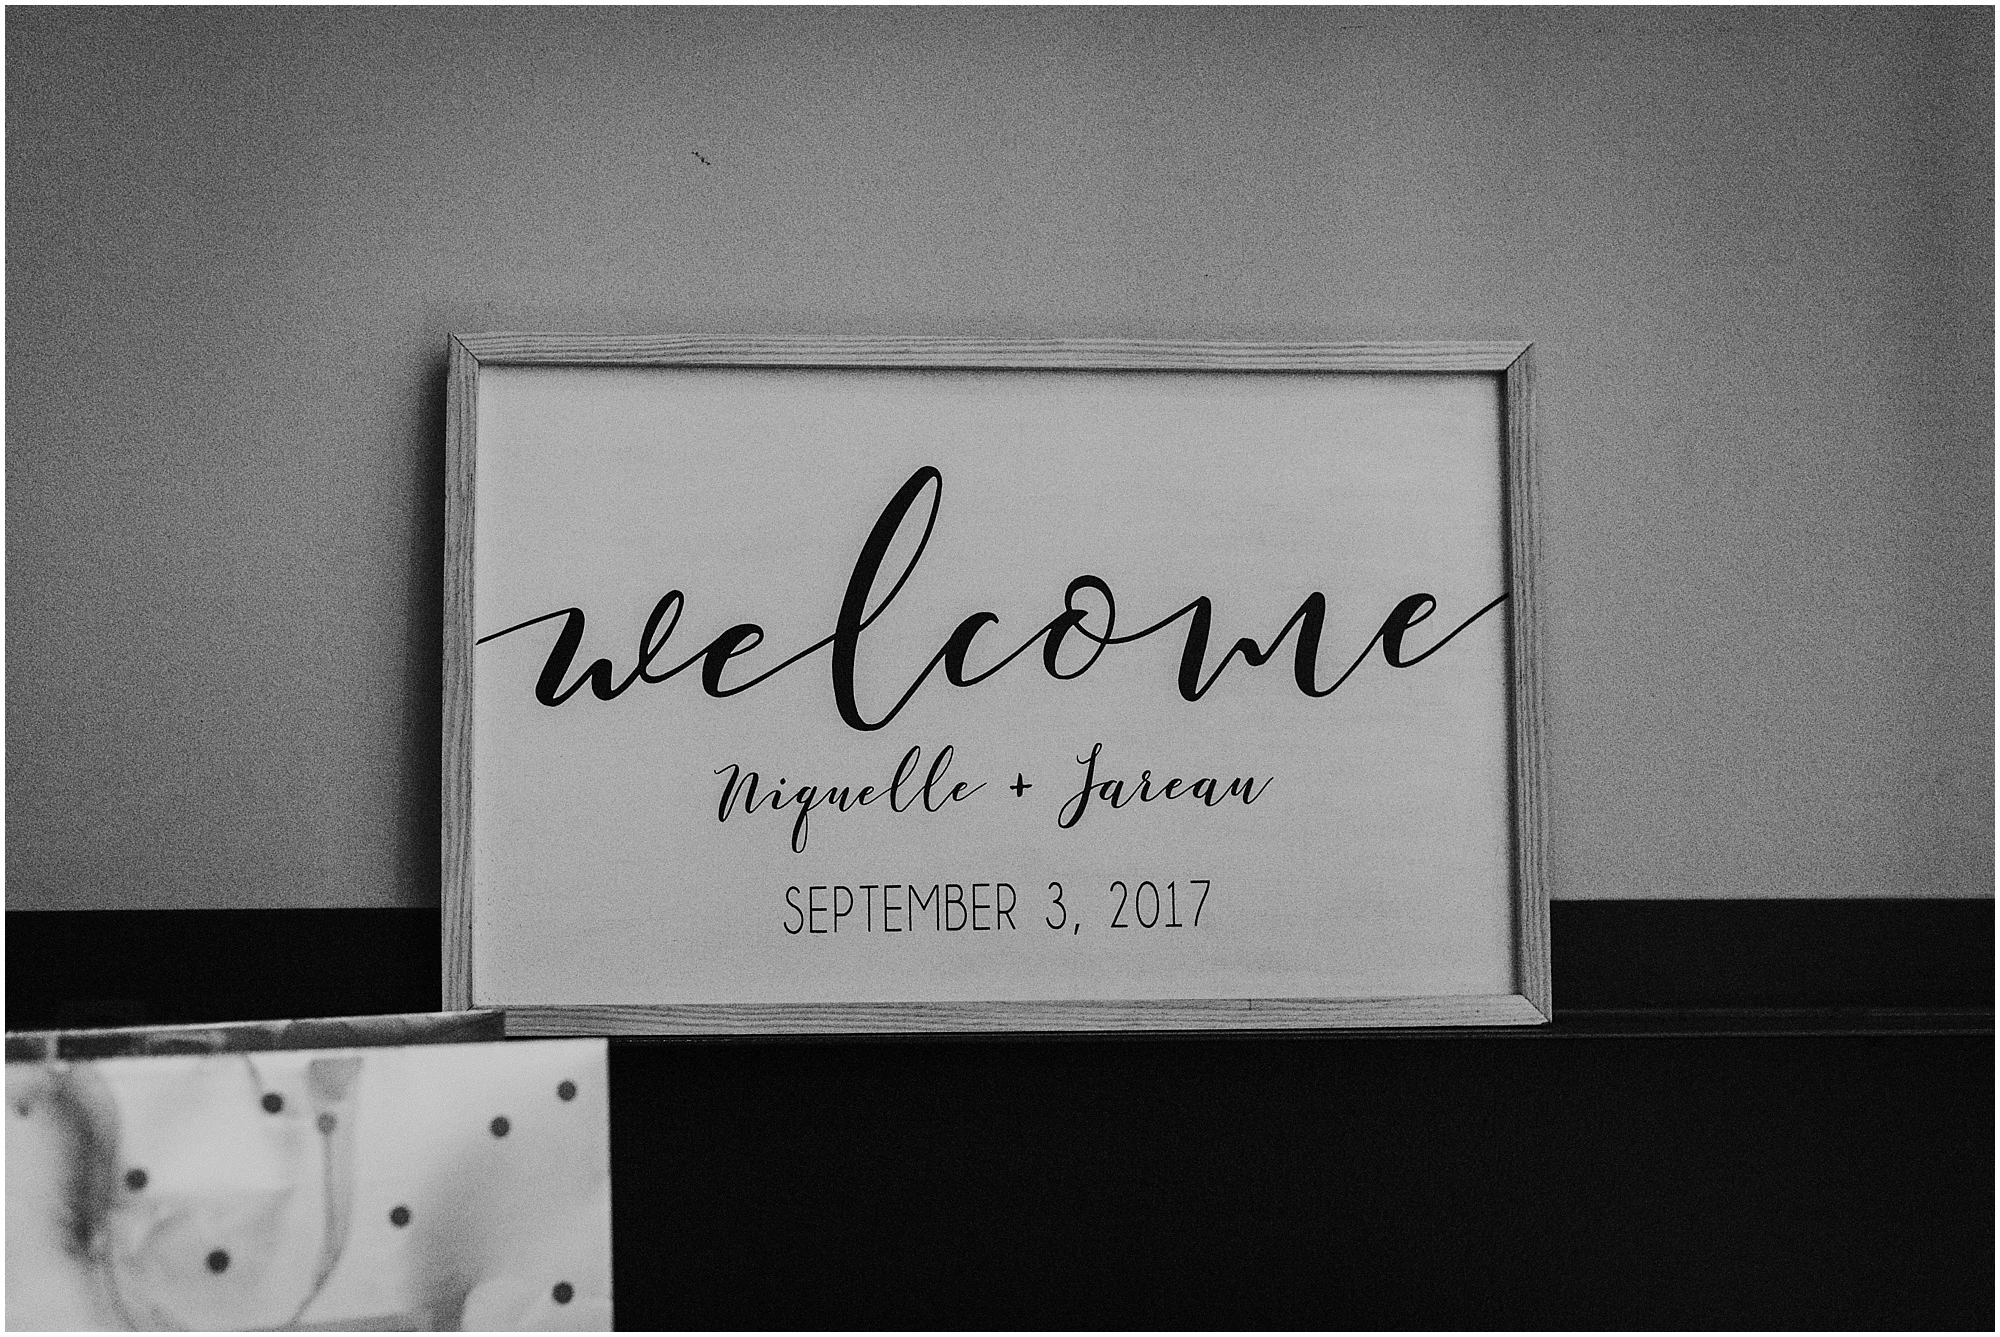 welcome
Niquelle + Jareau
SEPTEMBER 3, 2017